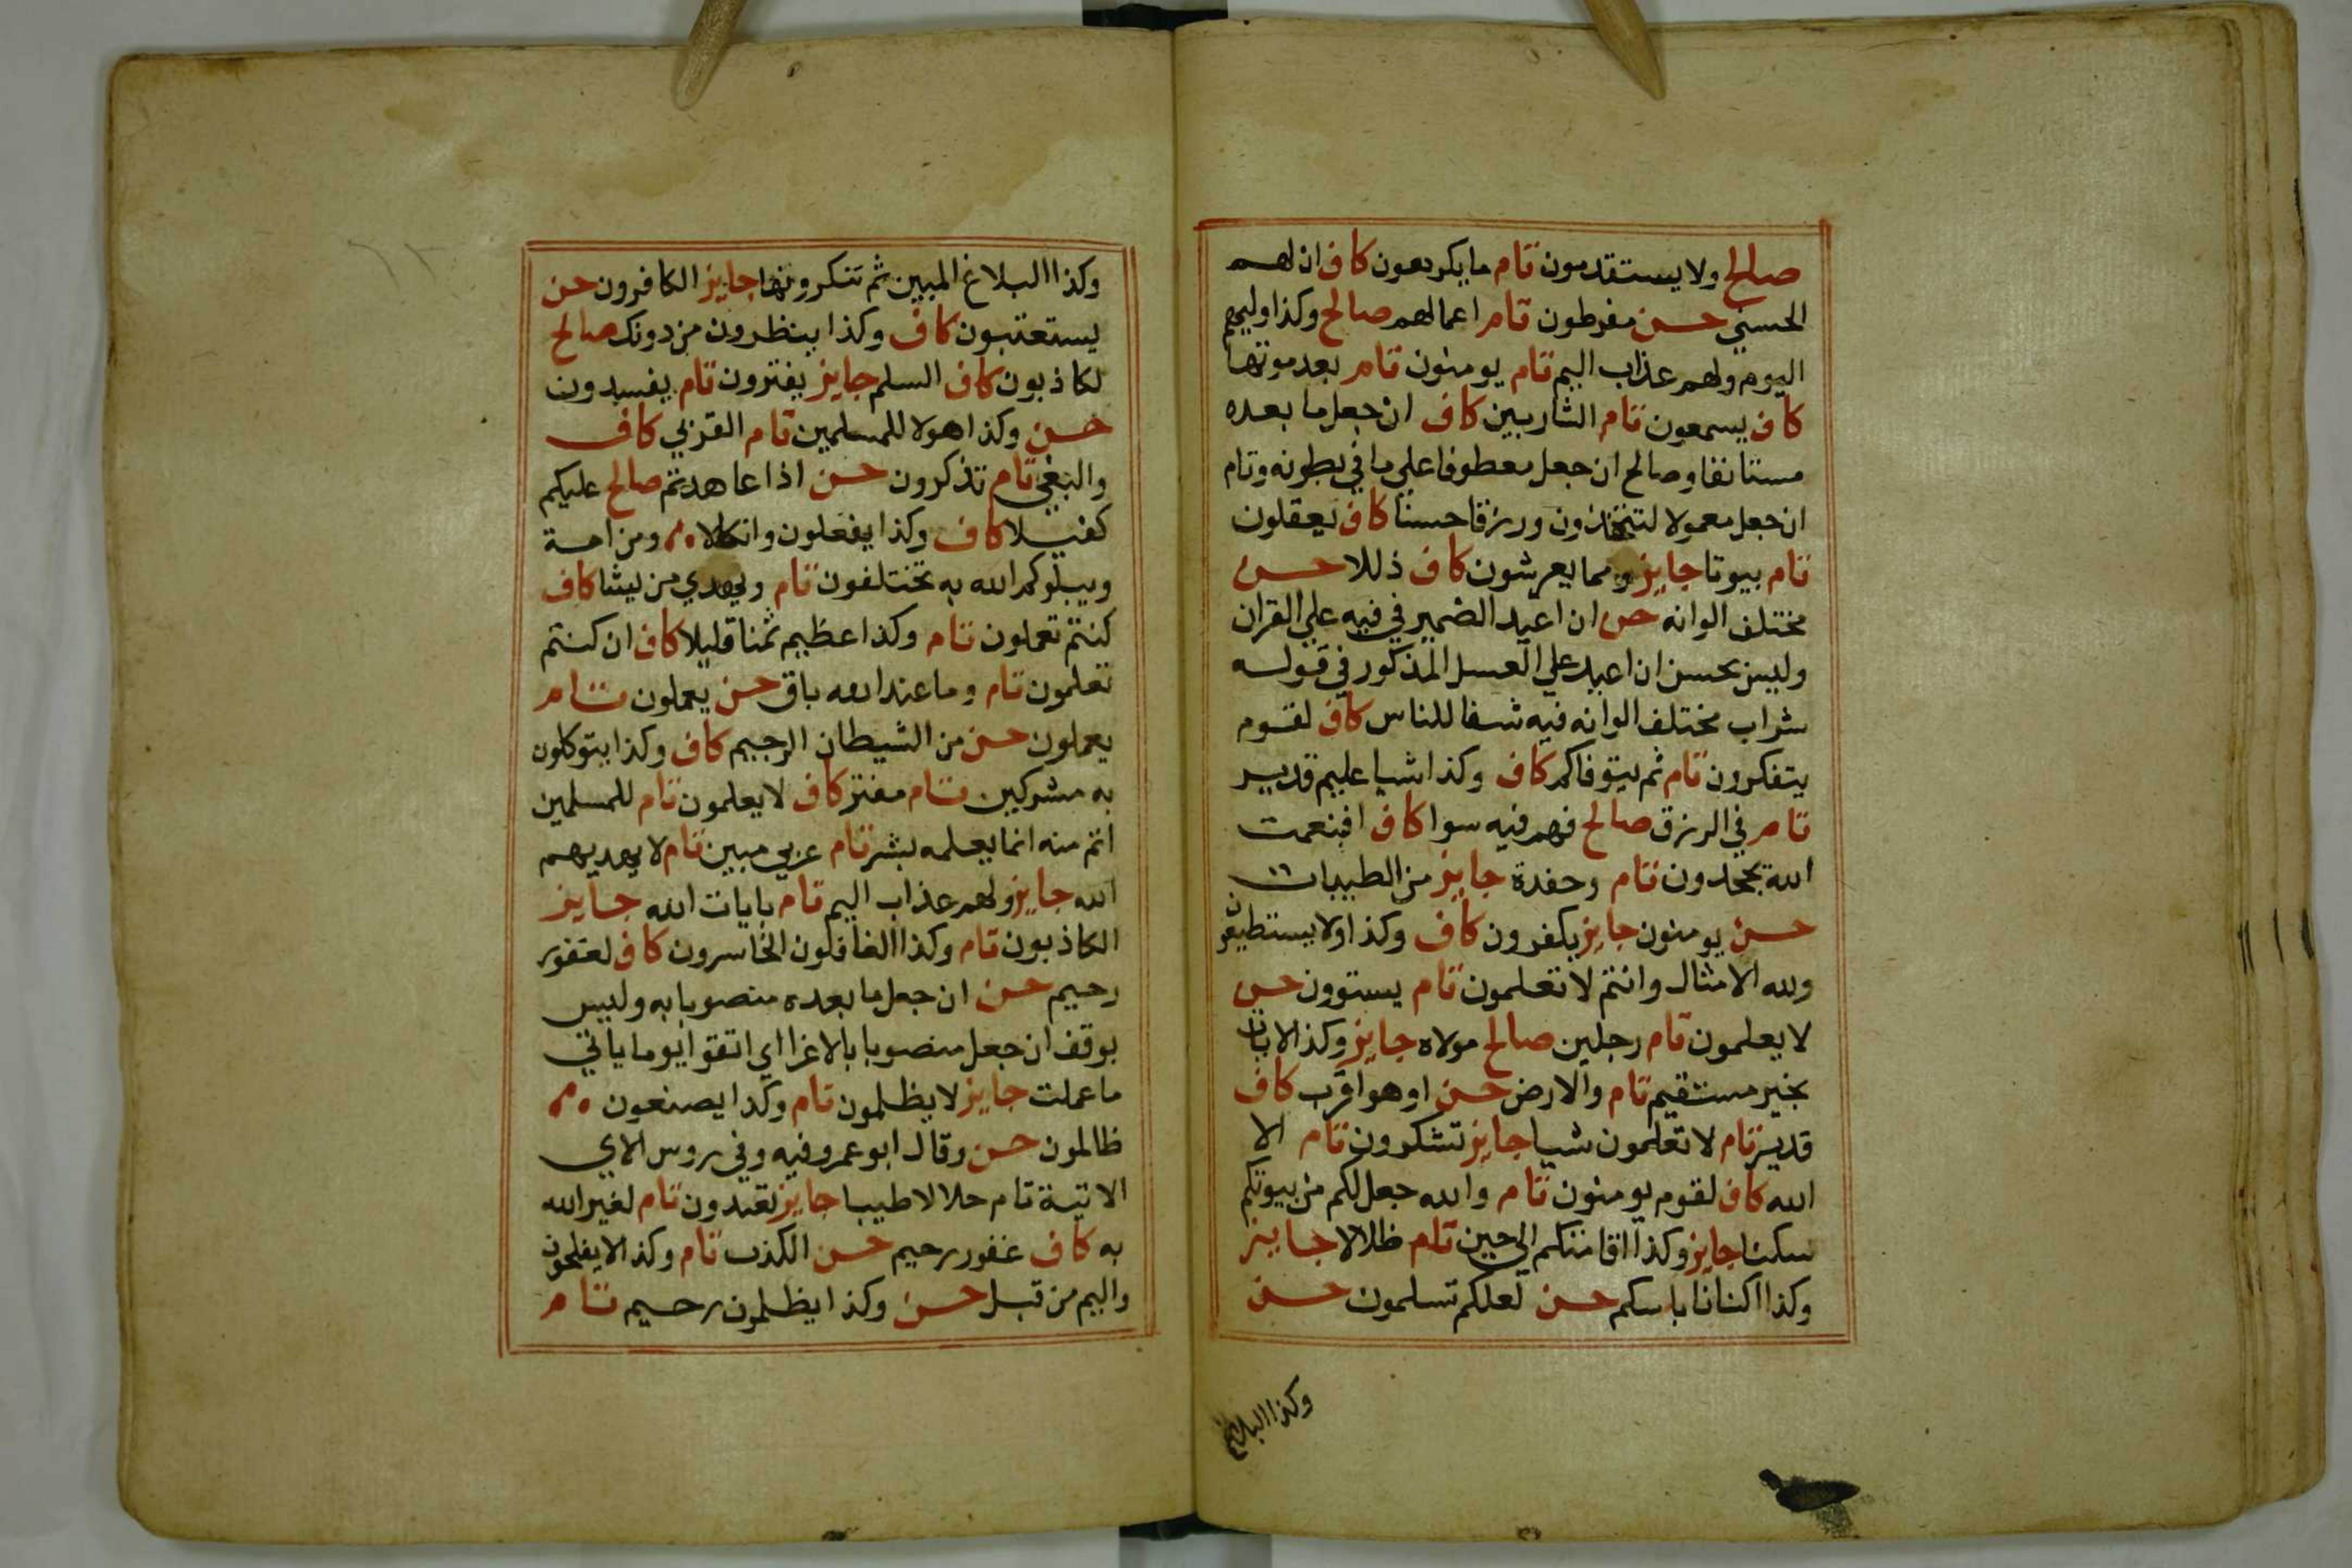 صالح ولا يستقدمون تام ما يكرهون كاف ان لهم
الحسني حسن مفرطون تام اعمالهم صالح وكذا وليهم
اليوم ولهم عذاب اليم تام يومنون تام بعد موتها
كاف يسمعون تام الشاربين كاف ان جعل ما بعده
مستانفا وصالح ان جعل معطوفا علي ما في بطونه وتام
ان جعل معمولا لتتخذون ورزقا حسنا كاف يعقلون
تام بيوتا جايز ومما يعرشون كاف ذللا حسن
مختلف الوانه حسن ان اعيد الضمير في فيه علي القران
وليس بحسن ان اعيد علي العسل المذكور في قوله
شراب مختلف الوانه فيه شفا للناس كاف لقوم
يتفكرون تام ثم يتوفاكم كاف وكذا شيا عليم قدير
تام في الرزق صالح فهم فيه سوا كاف افبنعمت
الله يجحدون تام وحفدة جايز من الطيبات
حسن يومنون جايز يكفرون كاف وكذا ولا يستطيعون
ولله الامثال وانتم لا تعلمون تام يستوون حسن
لا يعلمون تام رجلين صالح مولاه جايز وكذا لا يات
بخير مستقيم تام والارض حسن او هو اقرب كاف
قدير تام لا تعلمون شيا جايز تشكرون تام الا
الله كاف لقوم يومنون تام والله جعل لكم من بيوتكم
سكنا جايز وكذا اقامتكم الي حين تام ظلالا جايز
وكذا اكنانا باسكم حسن لعلكم تسلمون حسن
وكذا البلاغ
وكذا البلاغ المبين ثم تنكرونها جايز الكافرون حسن
يستعتبون كاف وكذا ينظرون من دونك صالح
لكاذبون كاف السلم جايز يفترون تام يفسدون
حسن وكذا هولا للمسلمين تام القربي كاف
والبغي تام تذكرون حسن اذا عاهدتم صالح عليكم
كفيلا كاف وكذا يفعلون وانكالا ومن امة
ويبلوكم الله به تختلفون تام ويهدي من يشا كاف
كنتم تعملون تام وكذا عظيم ثمنا قليلا كاف ان كنتم
تعلمون تام وما عند الله باق حسن يعملون تام
يعملون حسن من الشيطان الرجيم كاف وكذا يتوكلون
به مشركين تام مفتر كاف لا يعلمون تام للمسلمين
اتم منه انما يعلمه بشر تام عربي مبين تام لا يهديهم
الله جايز ولهم عذاب اليم تام بايات الله جايز
الكاذبون تام وكذا الغافلون الخاسرون كاف لغفور
رحيم حسن ان جعل ما بعده منصوبا به وليس
بوقف ان جعل منصوبا بالاغرا اي اتقوا يوما ياتي
ما عملت جايز لا يظلمون تام وكذا يصنعون
ظالمون حسن وقال ابو عمرو فيه وفي روس الاي
الاتية تام حلالا طيبا جايز تعبدون تام لغير الله
به كاف غفور رحيم حسن الكذب تام وكذا لا يفلحون
واليم من قبل حسن وكذا يظلمون رحيم تام